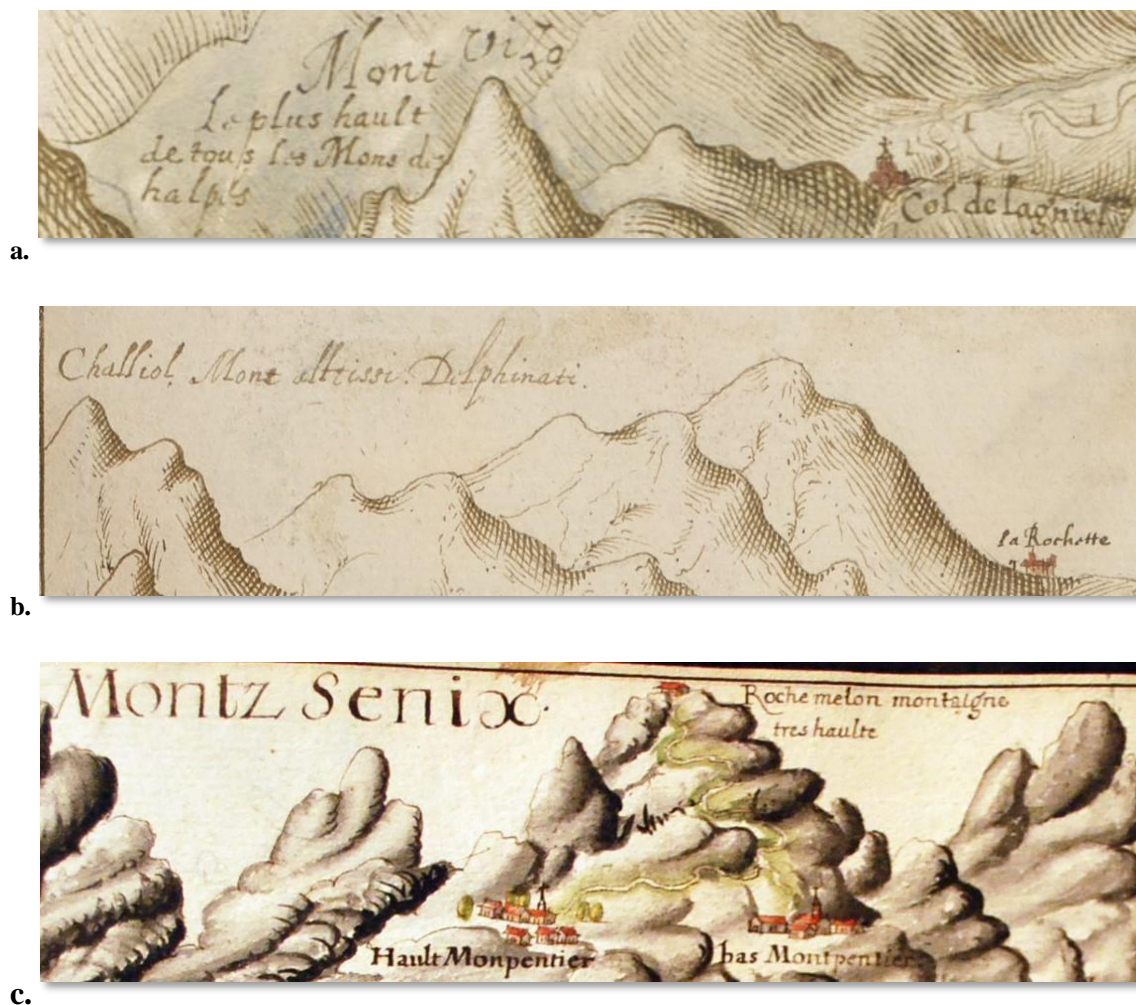 Mont Vizo
Le plus hault
de tous les Mons des
halpes
Col de lagniel
a.
Challiol Mont altissi. Delphinati.
la Rochette
b.
Montz Senix.
Roche melon montaigne
tres haulte
Hault Monpentier
bas Montpentier
c.